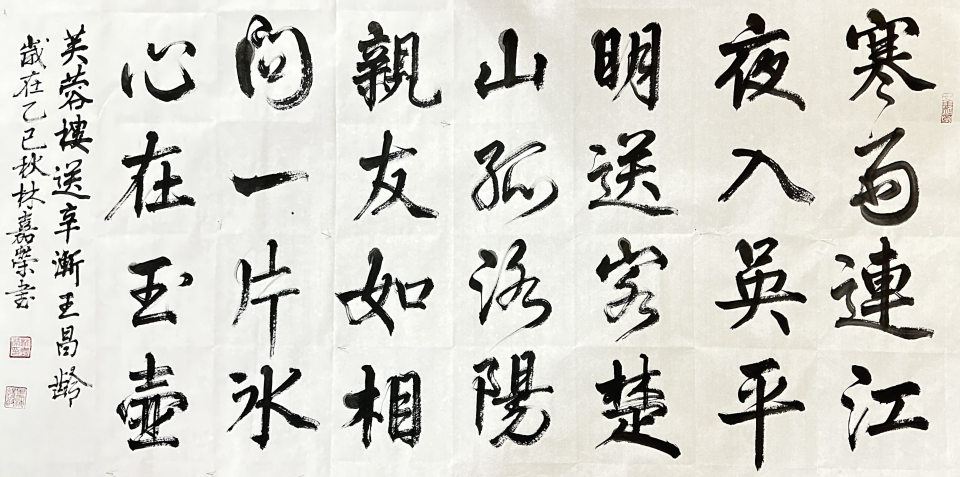 寒雨連江
夜入英平
明送客楚
山孤洛陽
親友如相
問一片氷
心在玉壺
芙蓉樓送辛漸王昌齡
歲在乙巳秋林嘉榮書